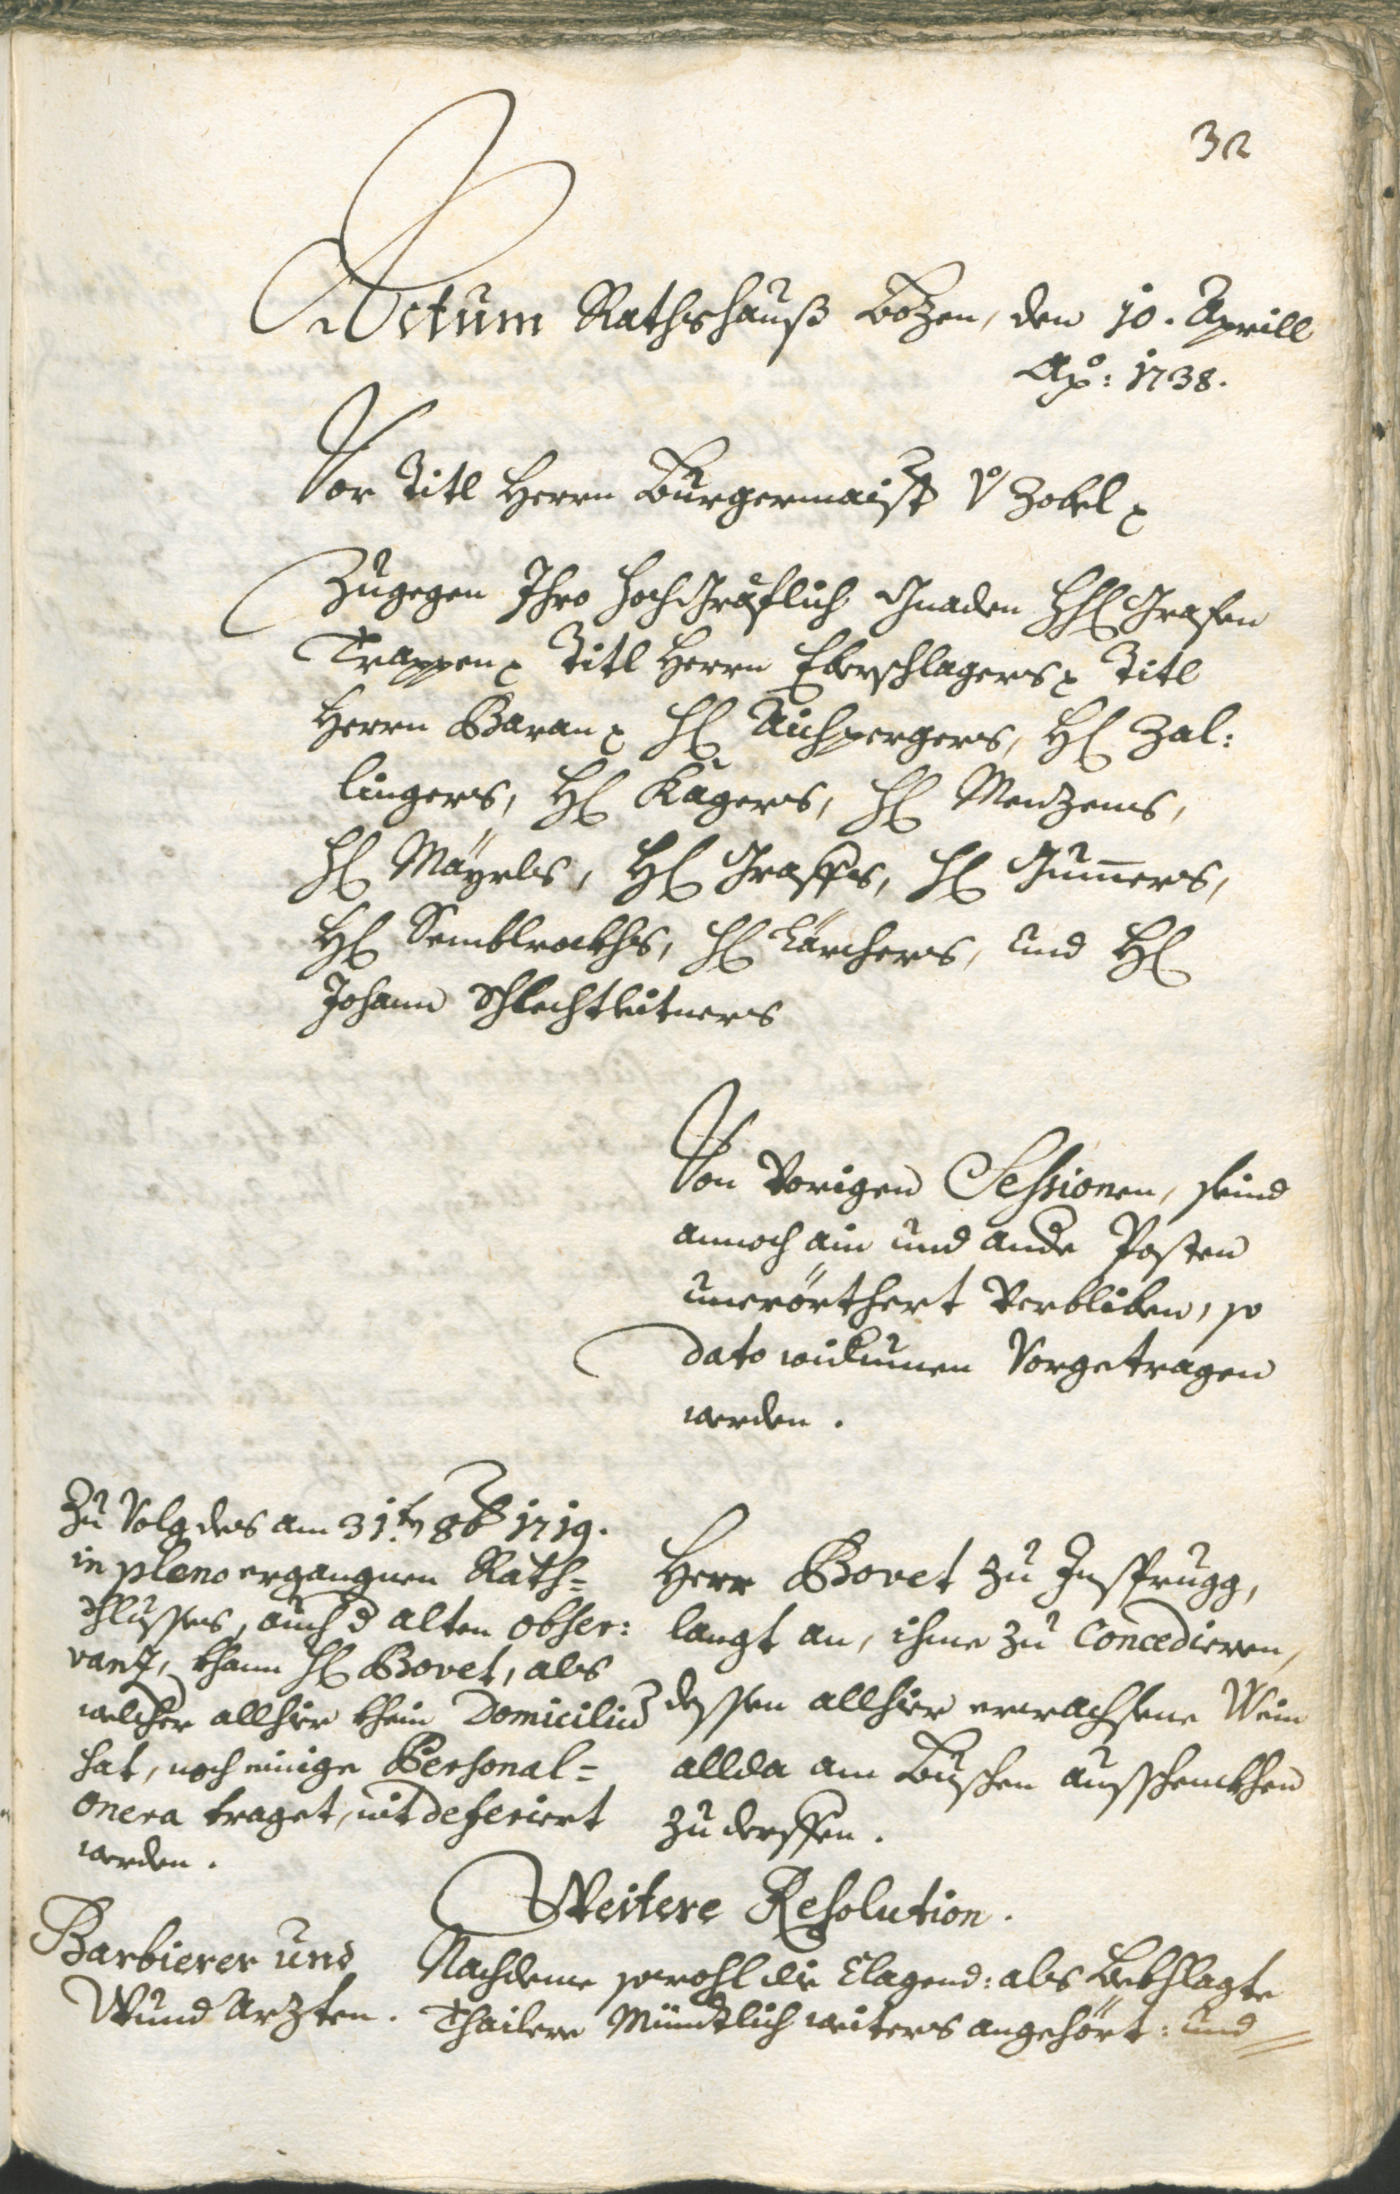 32
Actum Rathshauß Bozen, den 10. Aprill
Aō: 1738.
Vor Titl Herrn Burgermaistr v Zobel
Zugegen Ihro Hochgräflich Gnaden HH Grafen
Trappen Titl Herrn Eberschlagers Titl
Herrn Baran H Aichpergers, H Zal:
lingers, H Kägers, H Menzens,
H Mäyrls, H Graffs, H Gum̄ers,
H Semblrockhs, H Lärchers, und H
Johann Schlechtleitners
Von Vorigen Sessionen, seind
annoch ain und ande Posten
unerörthert Verbliben, so
dato widumen Vorgetragen
werden.
Zu Volg des am 31ten 8b 1719.
in pleno ergangnen Rath=
schlusses, auch d alten obser:
vanz, khann H Bovet, als
welcher allhier khein Domicilium
hat, noch einige Personal=
onera traget, nit deferiert
werden.
Herr Bovet zu Insprugg,
langt an, ihme zu Concedieren,
dessen allhier erwachsene Wein
allda am Buschen ausschenckhen
zu derffen.
Weitere Resolution.
Barbierer und
Wund Arzten.
Nachdeme sowohl die Clagend: als Bekhlagte
Thaillen Mündlich weiters angehört: und